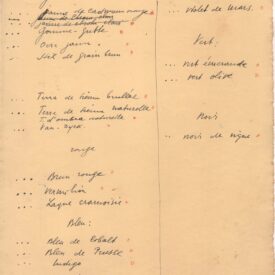 ... jaune de cadmium orange
jaune de chrome clair
Gomme-Gutte
Ocre jaune.
Stil de grain brun
... Terre de Sienne brulée
... Terre de Sienne naturelle
.. T. d'ombre naturelle
... Van. Dyck
rouge
... Brun rouge
... Vermillon
... Laque cramoisie
Bleu:
... Bleu de Cobalt
.. Bleu de Prusse
Indigo
... violet de mars.
Vert:
... vert émeraude
.. vert olive
Noir
.. noir de vigne